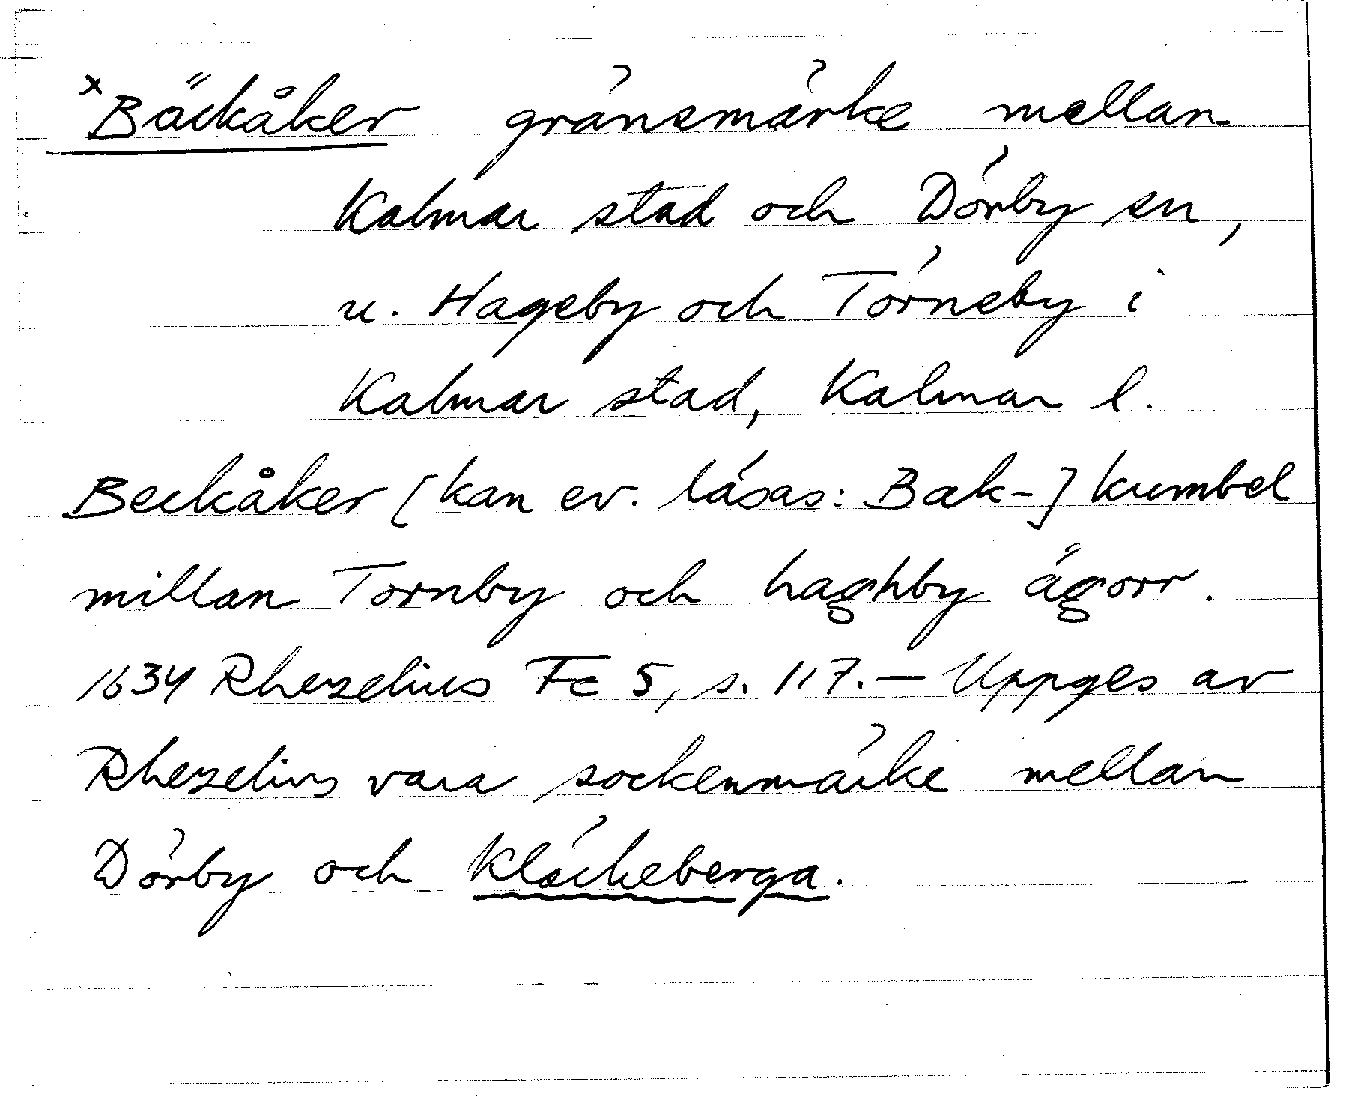 ˣBäckåker gränsmärke mellan
Kalmar stad och Dörby sn,
u. Hageby och Törneby i
Kalmar stad, Kalmar l.
Beckåker [kan ev. läsas: Bak-] kumbel
millan Tornby och haghby ägorr.
1634 Rhezelius Fc 5, s. 117. — Uppges av
Rhezelius vara sockenmärke mellan
Dörby och Kläckeberga.